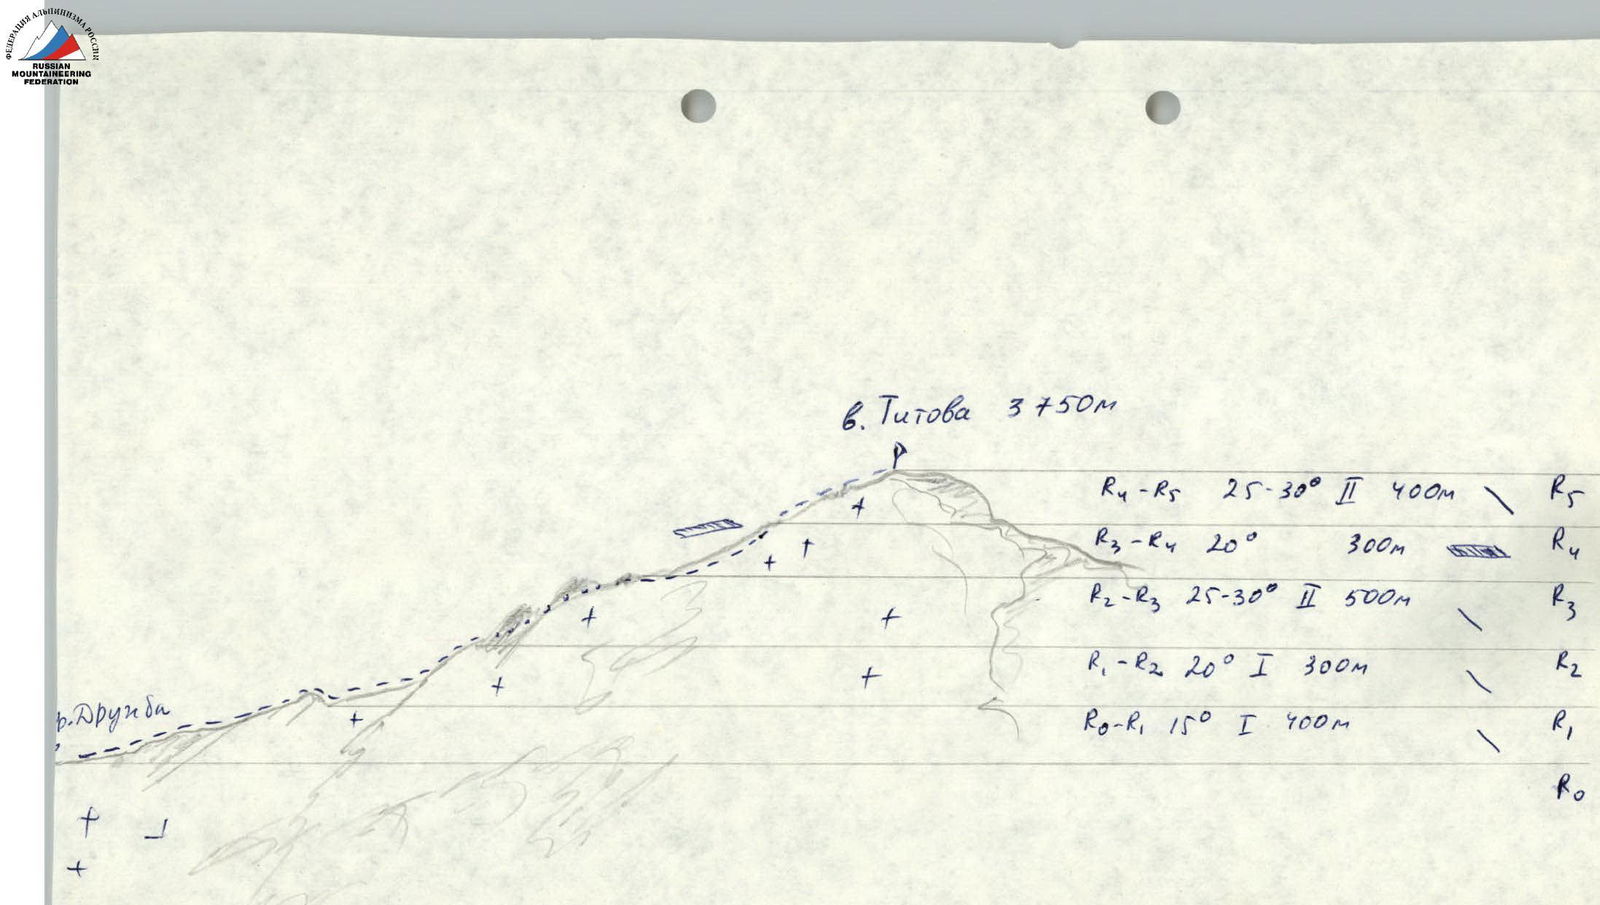 ФЕДЕРАЦИЯ АЛЬПИНИЗМА РОССИИ
RUSSIAN
MOUNTAINEERING
FEDERATION
в. Титова 3750м
R4-R5 25-30° II 400м R5
R3-R4 20° 300м R4
R2-R3 25-30° II 500м R3
R1-R2 20° I 300м R2
р. Дружба
R0-R1 15° I 400м R1
R0